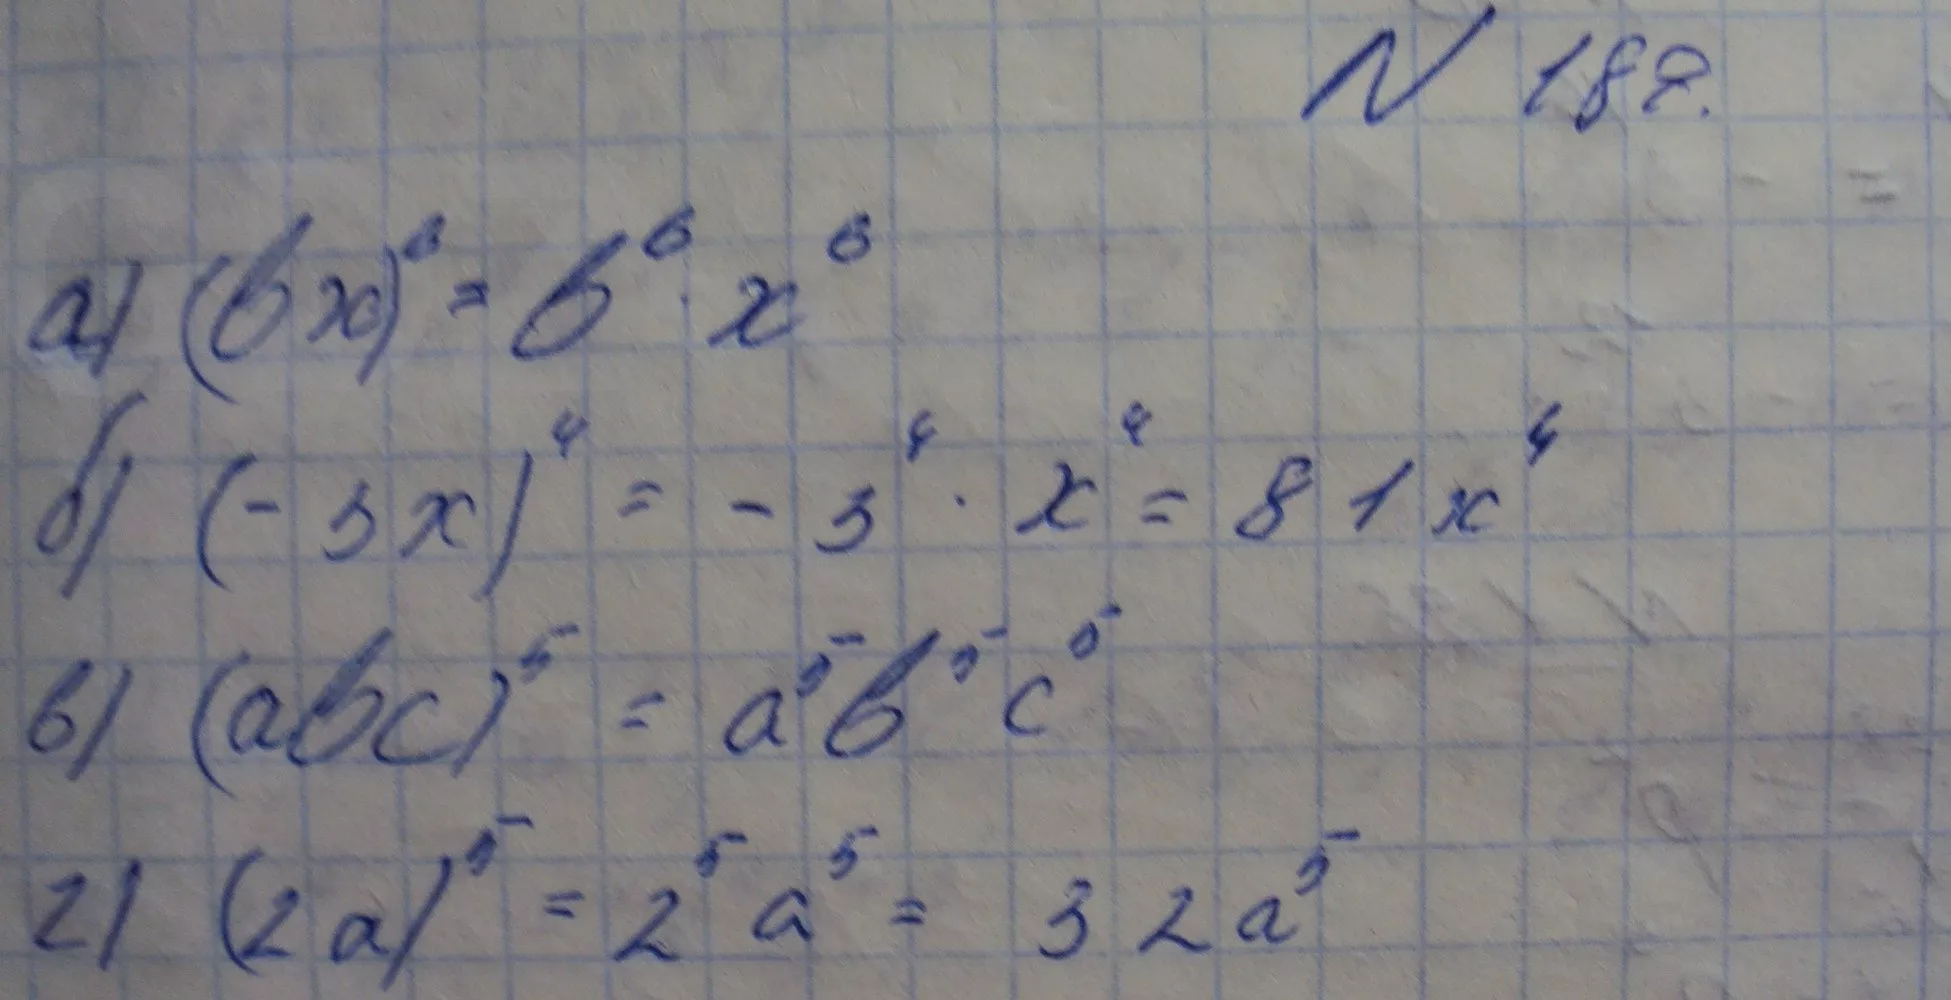 N 189.
а) (bx)⁶ = b⁶ · x⁶
б) (- 3x)⁴ = - 3⁴ · x⁴ = 81x⁴
в) (abc)⁵ = a⁵b⁵c⁵
г) (2a)⁵ = 2⁵a⁵ = 32a⁵